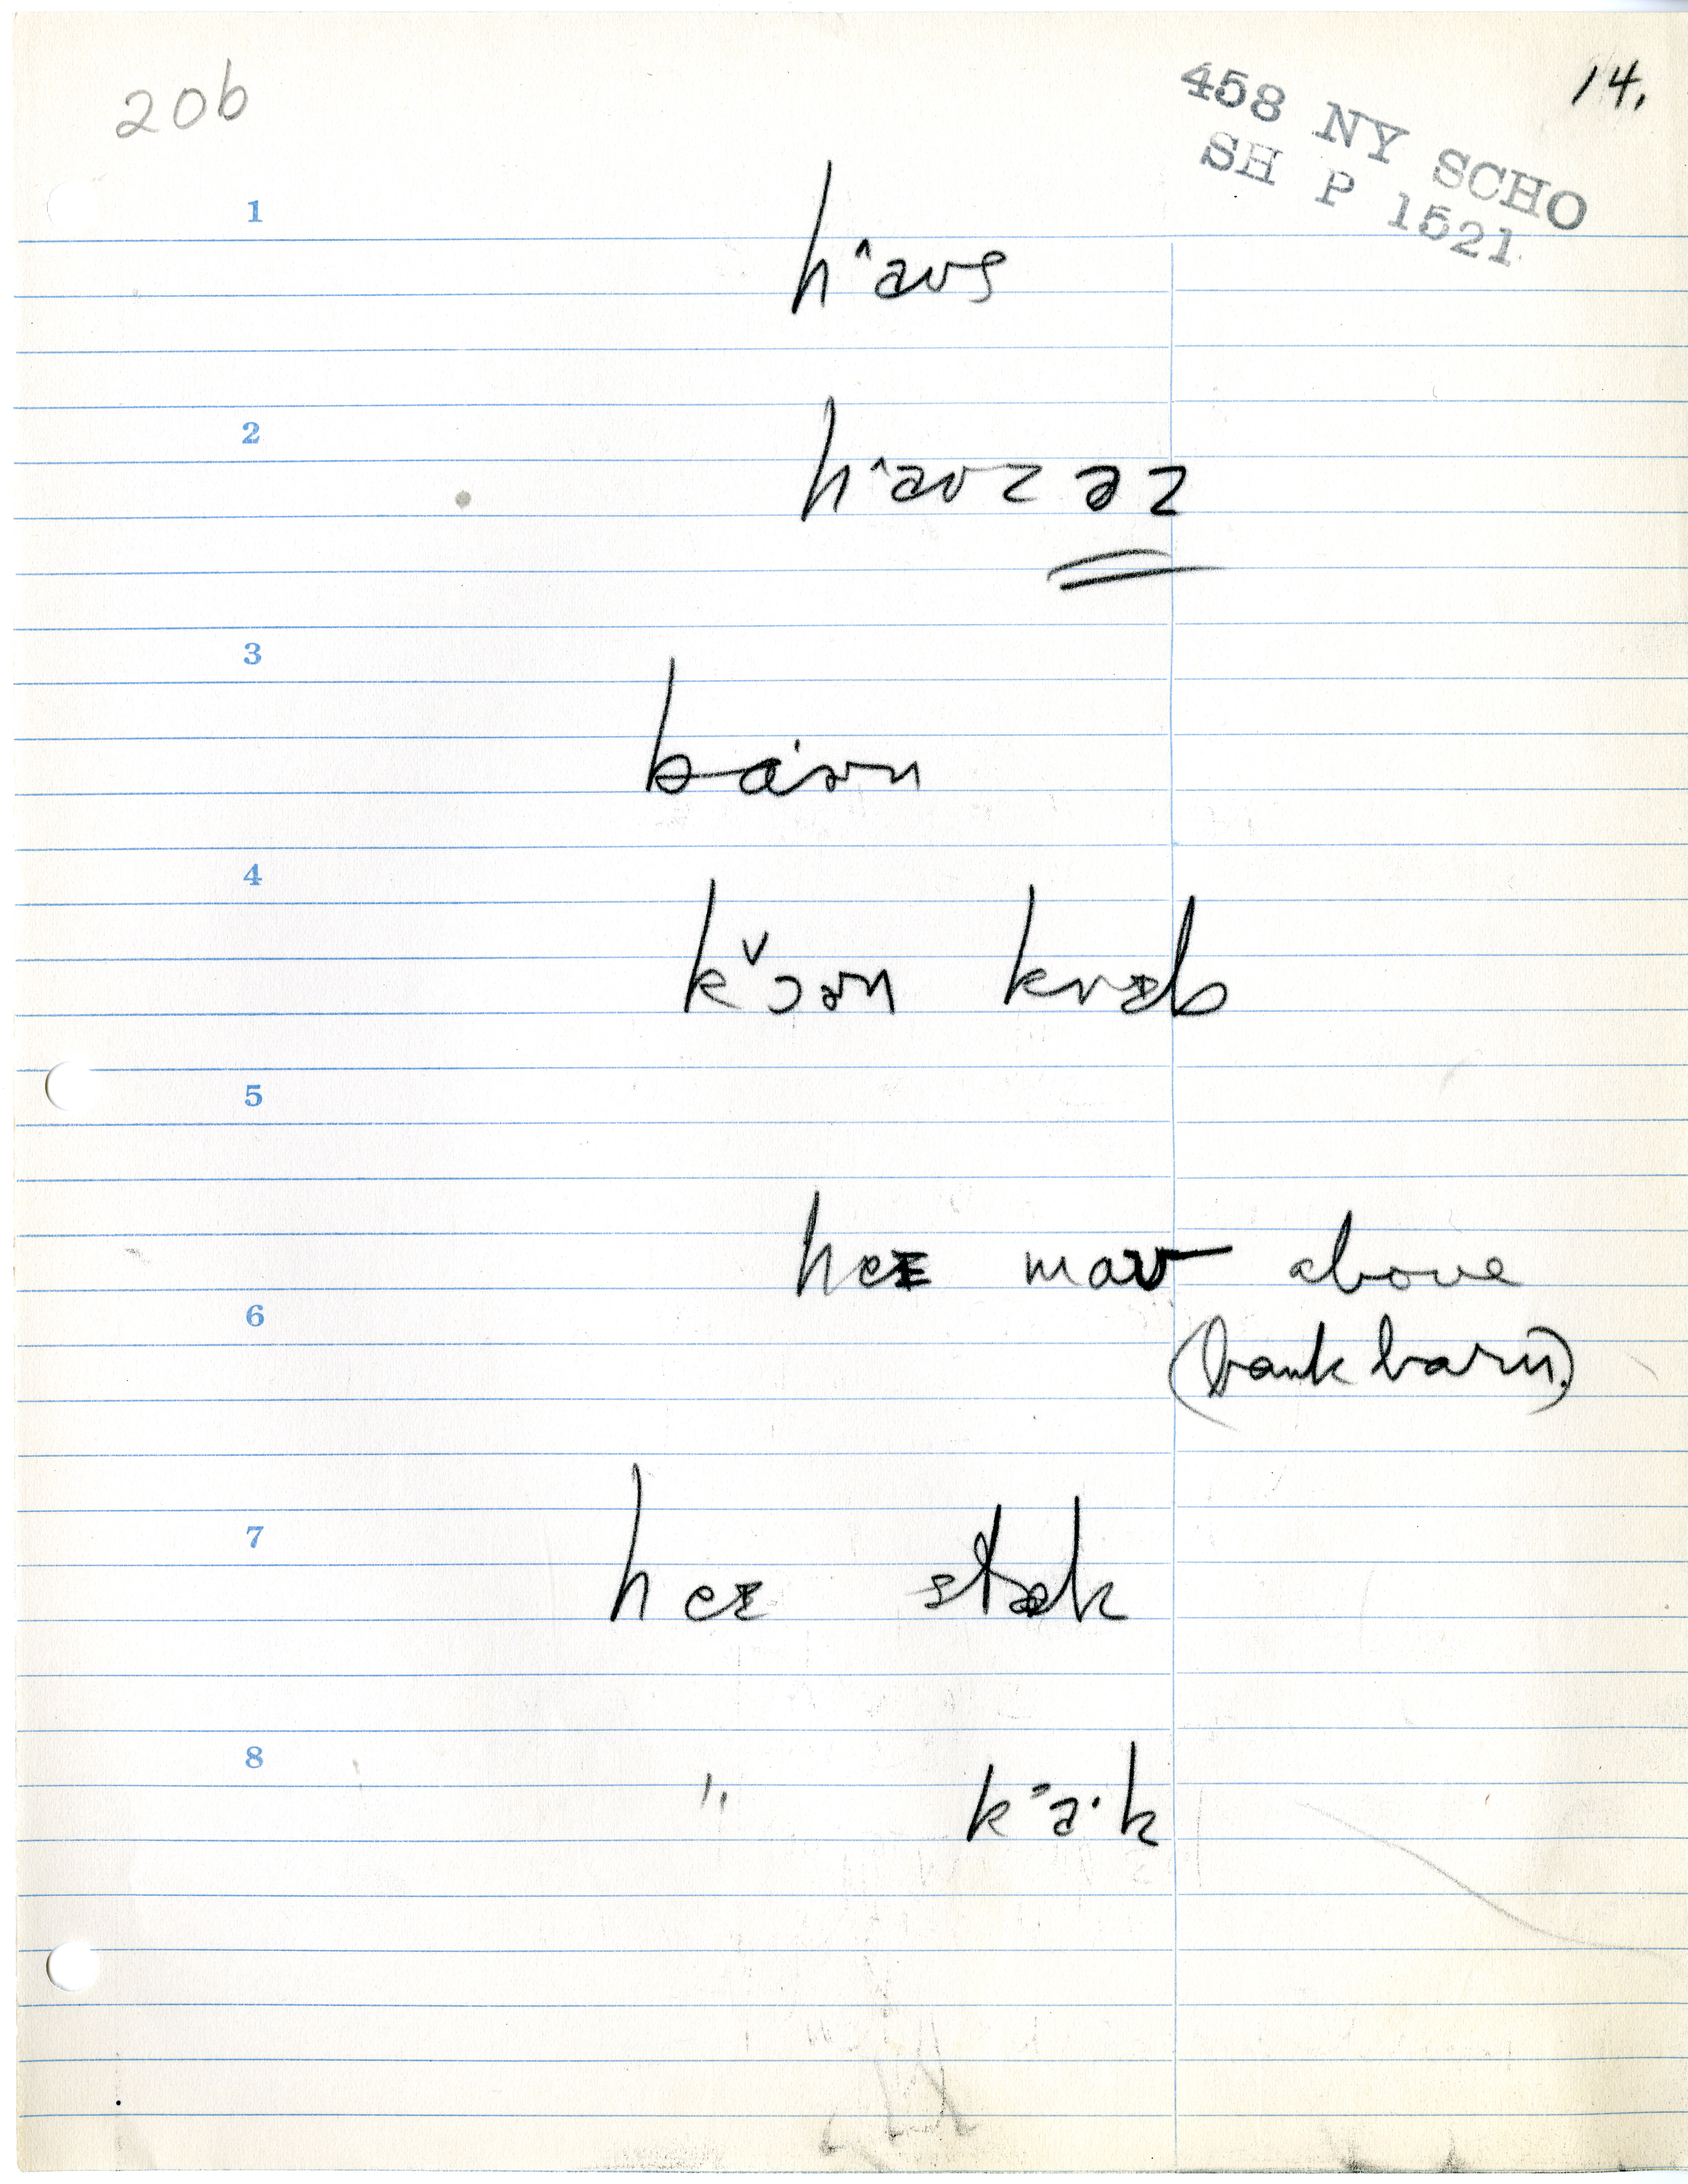 20b
14.
458 NY SCHO
SH P 1521
1
h^aʊs
2
h^aʊzəz
3
ba'ɚn
4
kˇɔɚn krɪb
5
heɪ maʊ above
6
(bank barn.)
7
heɪ stæk
8
" k>a·k